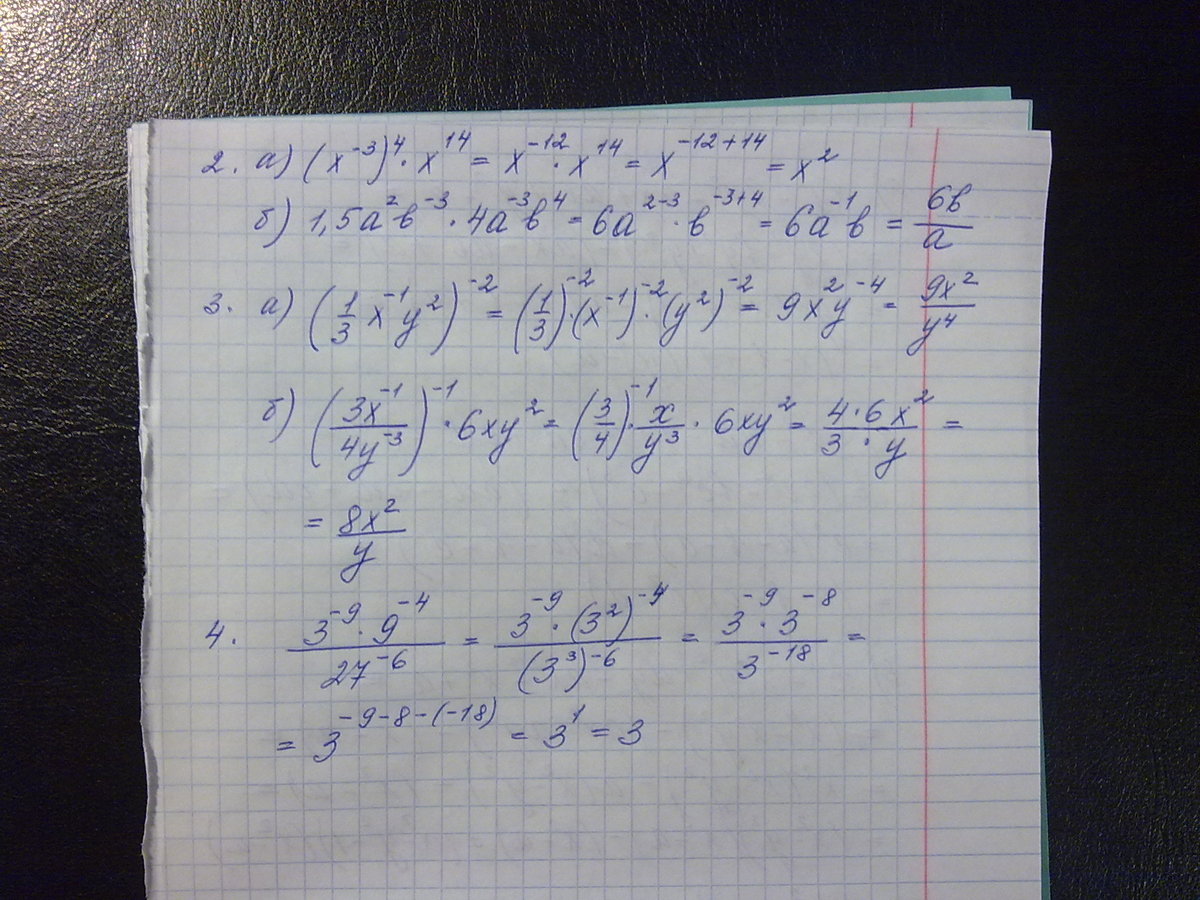 2. а) (x⁻³)⁴ · x¹⁴ = x⁻¹² · x¹⁴ = x⁻¹²⁺¹⁴ = x²
б) 1,5a²b⁻³ · 4a⁻³b⁴ = 6a²⁻³ · b⁻³⁺⁴ = 6a⁻¹b = 6b/a
3. а) (1/3 x⁻¹y²)⁻² = (1/3)⁻² · (x⁻¹)⁻² · (y²)⁻² = 9x²y⁻⁴ = 9x²/y⁴
б) (3x⁻¹/4y⁻³)⁻¹ · 6xy² = (3/4)⁻¹ · x/y³ · 6xy² = 4·6x²/3·y =
= 8x²/y
4. 3⁻⁹ · 9⁻⁴/27⁻⁶ = 3⁻⁹ · (3²)⁻⁴/(3³)⁻⁶ = 3⁻⁹ · 3⁻⁸/3⁻¹⁸ =
= 3⁻⁹⁻⁸⁻⁽⁻¹⁸⁾ = 3¹ = 3